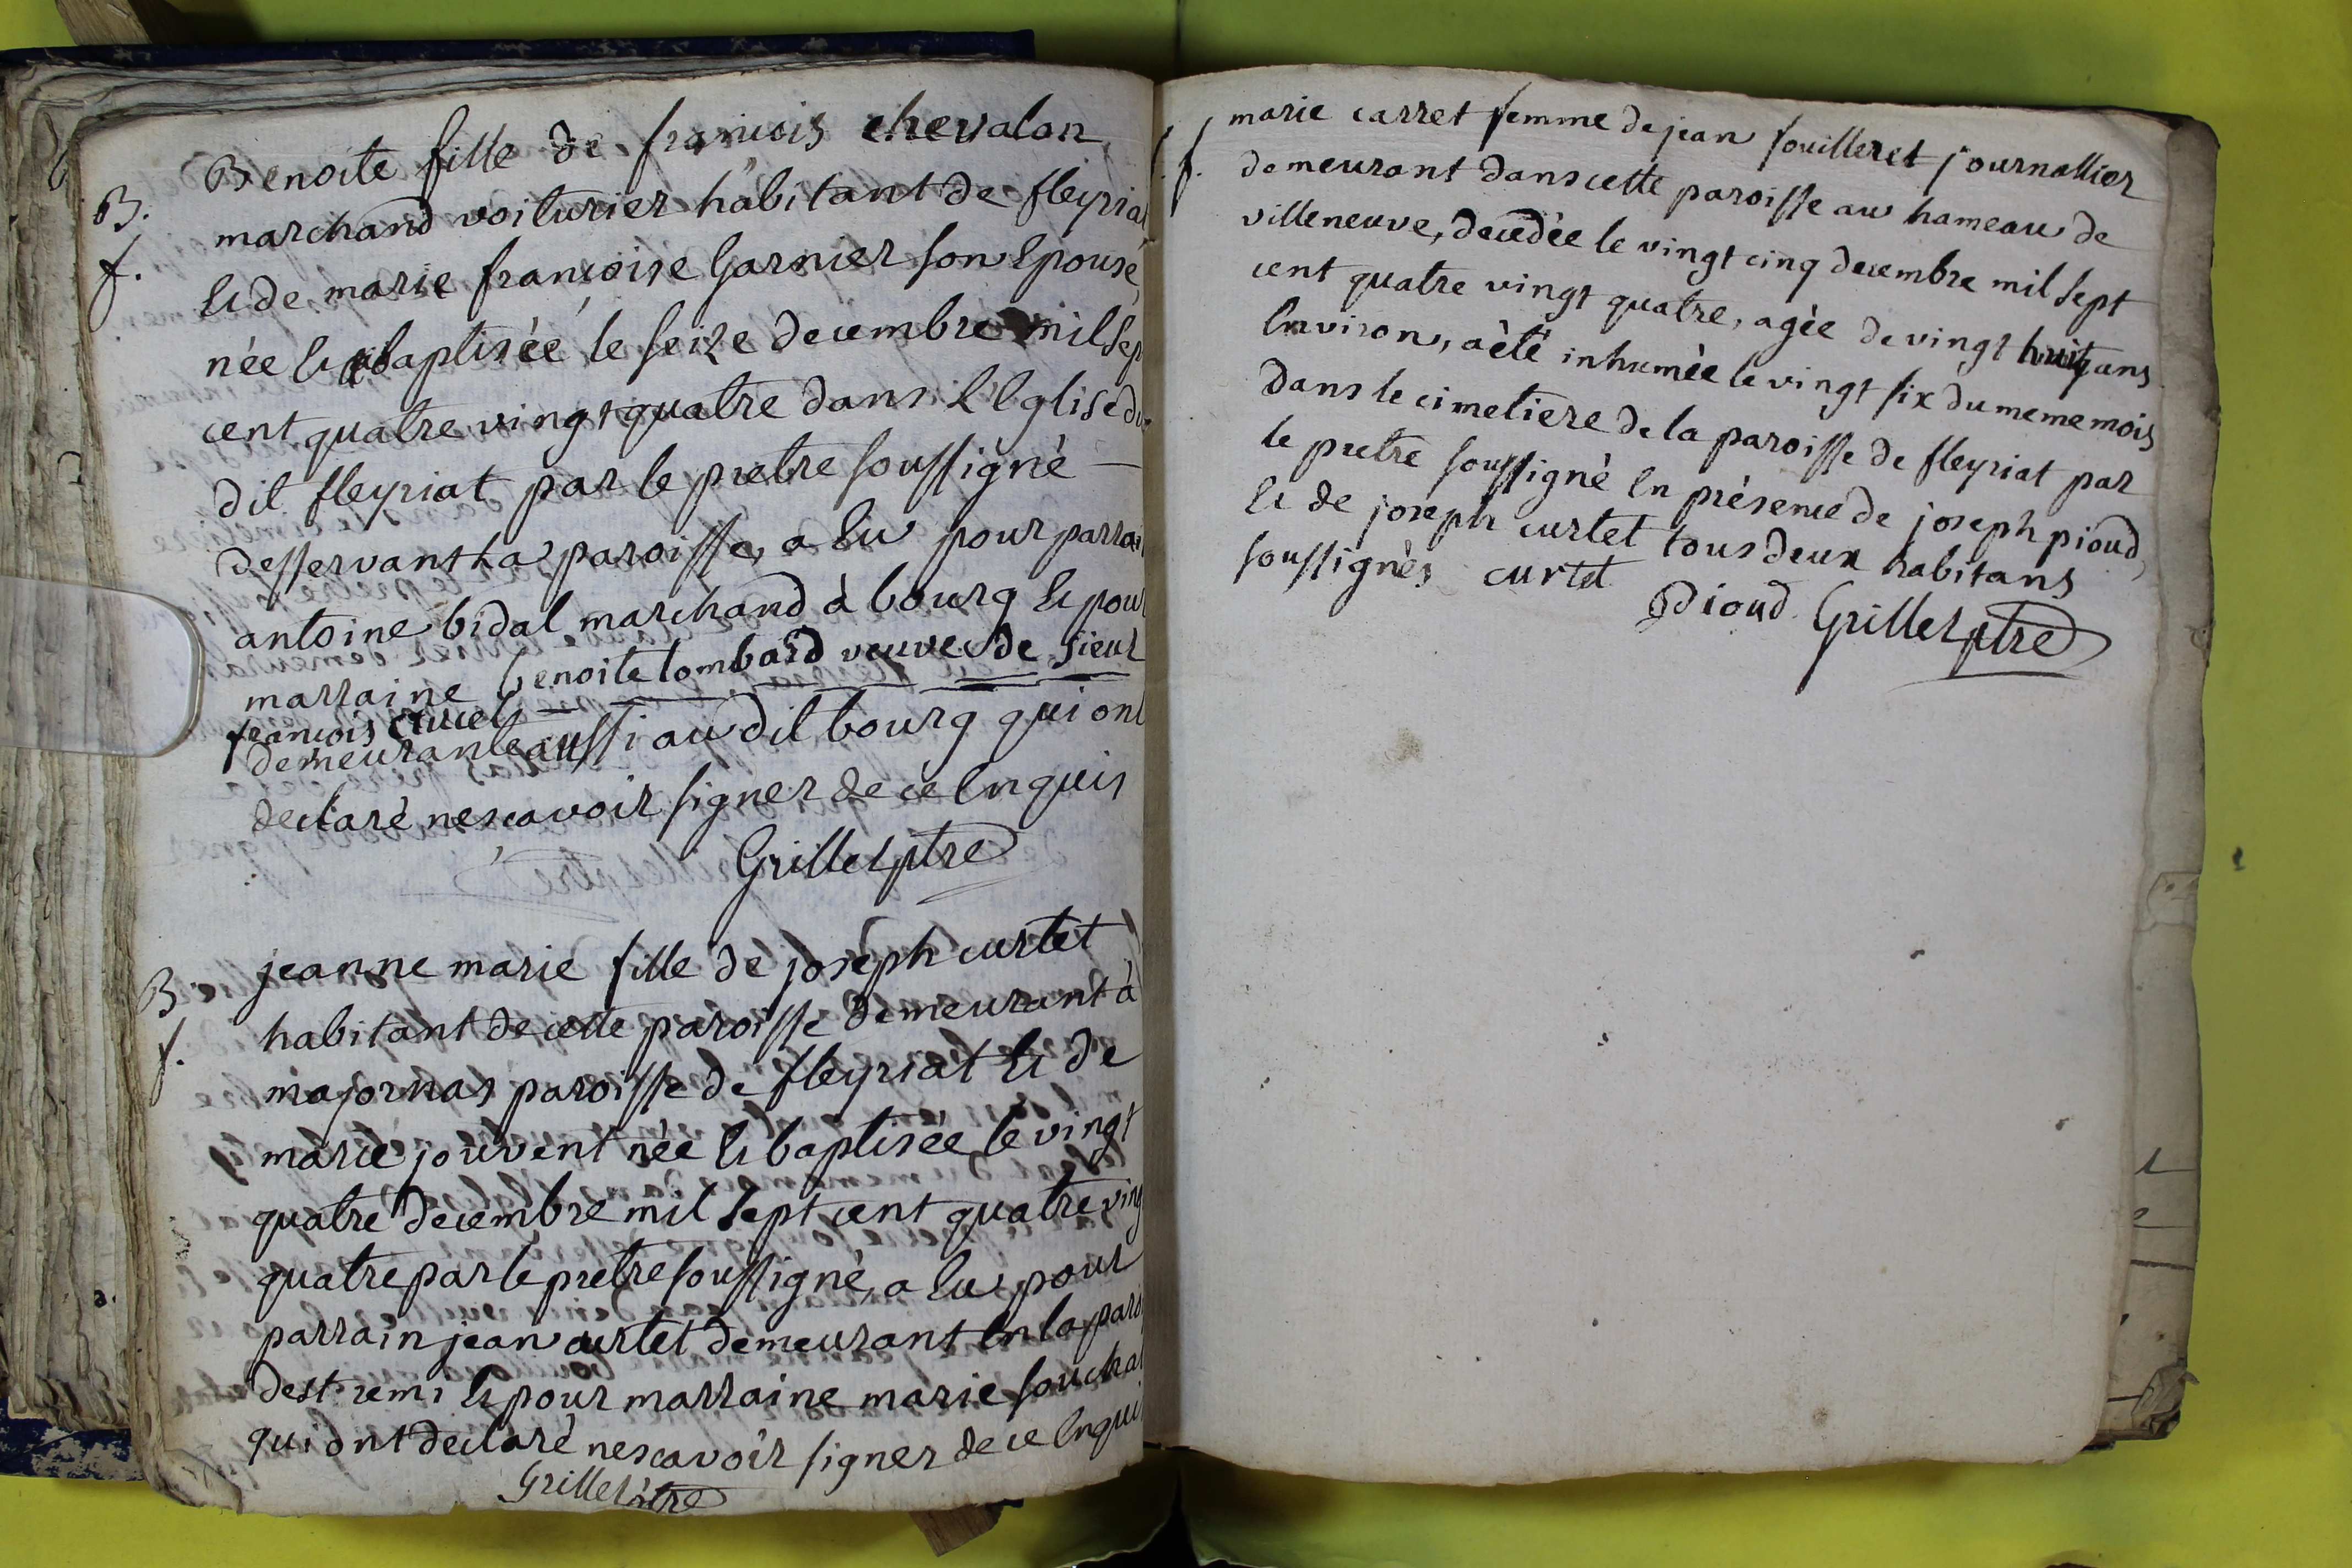 B.
f.
Benoite fille de francois chevalon
marchand voiturier habitant de fleyriat
Et de marie francoise Garnier son Epouse,
née Et baptisée le seize decembre mil sept
cent quatre vingt quatre dans l'Eglise du
dit fleyriat par le pretre soussigné —
desservant la paroisse, a Eu pour parrain
antoine bidal marchand à bourg Et pour
marraine benoite lombard veuve de sieur
francois
demeurante aussi au dit bourg qui ont
declaré ne scavoir signer de ce Enquis
Grillet ptre
B.
f.
jeanne marie fille de joseph curtet
habitant de cette paroisse demeurant à
majornas paroisse de fleyriat Et de
marie jouvent née Et baptisée le vingt
quatre decembre mil sept cent quatre ving
quatre par le pretre soussigné, a Eu pour
parrain jean curtet demeurant En la paroi
de st. remi Et pour marraine marie
qui ont declaré ne scavoir signer de ce Enqui
Grillet ptre
f.
marie carret femme de jean souilleret journallier
demeurant dans cette paroisse au hameau de
villeneuve, decedée le vingt cinq decembre mil sept
cent quatre vingt quatre, agèe de vingt huit ans
Environ, a èté inhumèe le vingt six du meme mois
dans le cimetiere de la paroisse de fleyriat par
le pretre soussigné En présence de joseph pioud,
Et de joseph curtet tous deux habitans
soussignès curtet Pioud Grillet ptre